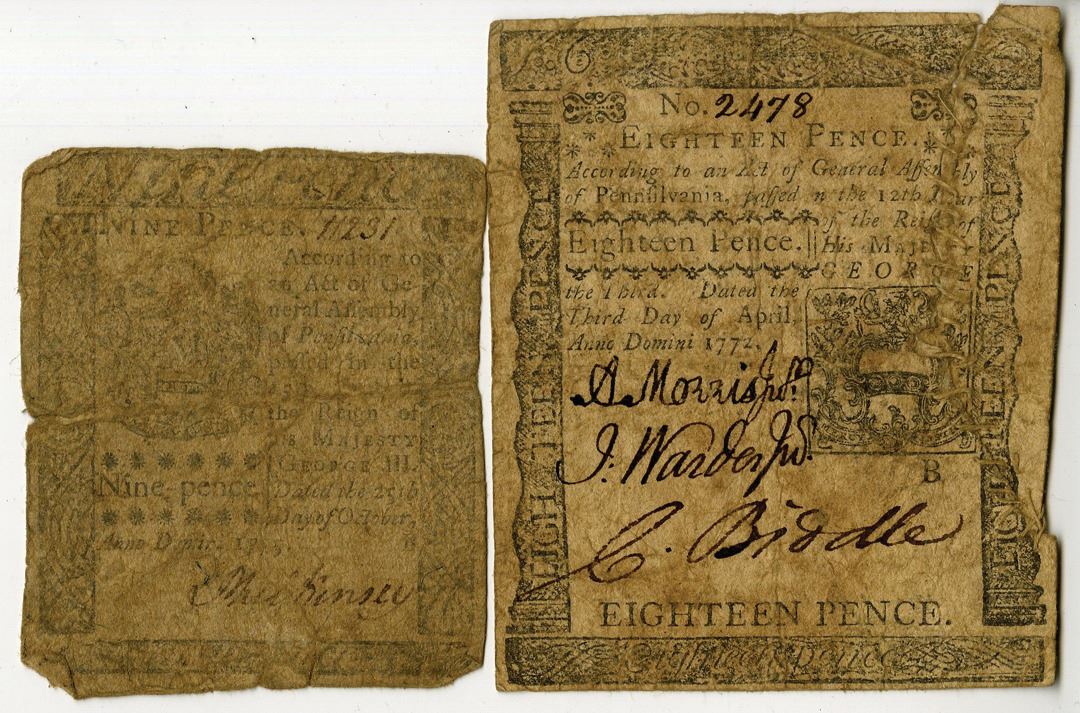 Nine Pence
NINE PENCE. 11231
According to
an Act of Ge-
neral Assembly
of Pensilvania,
passed in the
the Reign of
his MAJESTY
GEORGE III.
Nine pence
Dated the 25th
Day of October,
Anno Domini,
B
No. 2478
EIGHTEEN PENCE.
According to an Act of General Assembly
of Pennsylvania, passed in the 12th Year
of the Reign of
Eighteen Pence.
His MAJESTY
GEORGE
the Third. Dated the
Third Day of April,
Anno Domini 1772.
A Morris Junr.
J. Warder Jur.
B
C. Biddle
EIGHTEEN PENCE.
Eighteen pence
EIGHTEEN PENCE
EIGHTEEN PENCE